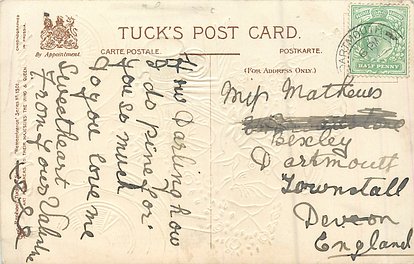 TUCK'S POST CARD.
CARTE POSTALE.
POSTKARTE.
(FOR ADDRESS ONLY.)
By Appointment.
CHROMOGRAPHED
HALF PENNY
DARTMOUTH
How Darling how
I do pine for
you so much
Do you love me
Sweetheart
From your Valintine
Miss Mathews
Bexley
Dartmoutt
Townstall
Devon
England